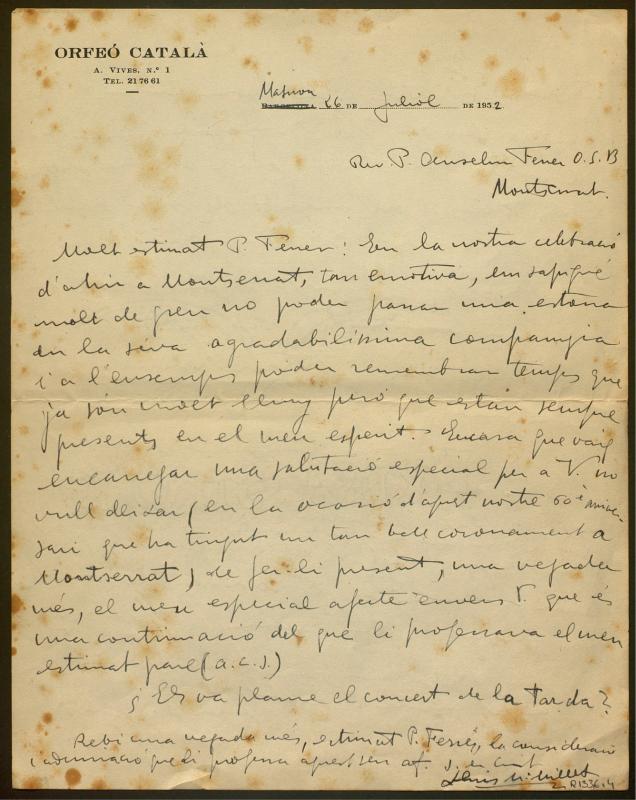 ORFEÓ CATALÀ
A. VIVES, N.º 1
TEL. 21 76 61
BARCELONA 26 DE Juliol DE 1952
Rev P. Anselm Ferrer O.S.B
Montserrat.
Molt estimat P. Ferrer: En la nostra celebració
d'ahir a Montserrat, tan emotiva, em sapigué
molt de greu no poder passar una estona
en la seva agradabilíssima companyia
i a l'ensemps poder remembrar temps que
ja són molt lluny però que estan sempre
presents en el meu esperit. Encara que vaig
encarregar una salutació especial per a V. no
vull deixar (en la ocasió d'aquest nostre 60è aniver-
sari que ha tingut un tan bell coronament a
Montserrat) de fer-li present, una vegada
més, el meu especial afecte envers V. que és
una continuació del que li professava el meu
estimat pare (a.c.s.)
¿ Els va plaure el concert de la tarda?
Rebi una vegada més, estimat P. Ferrer, la consideració
i admiració que li professa aquest seu af. s. en Crist
Lluís M. Millet
R1336.4